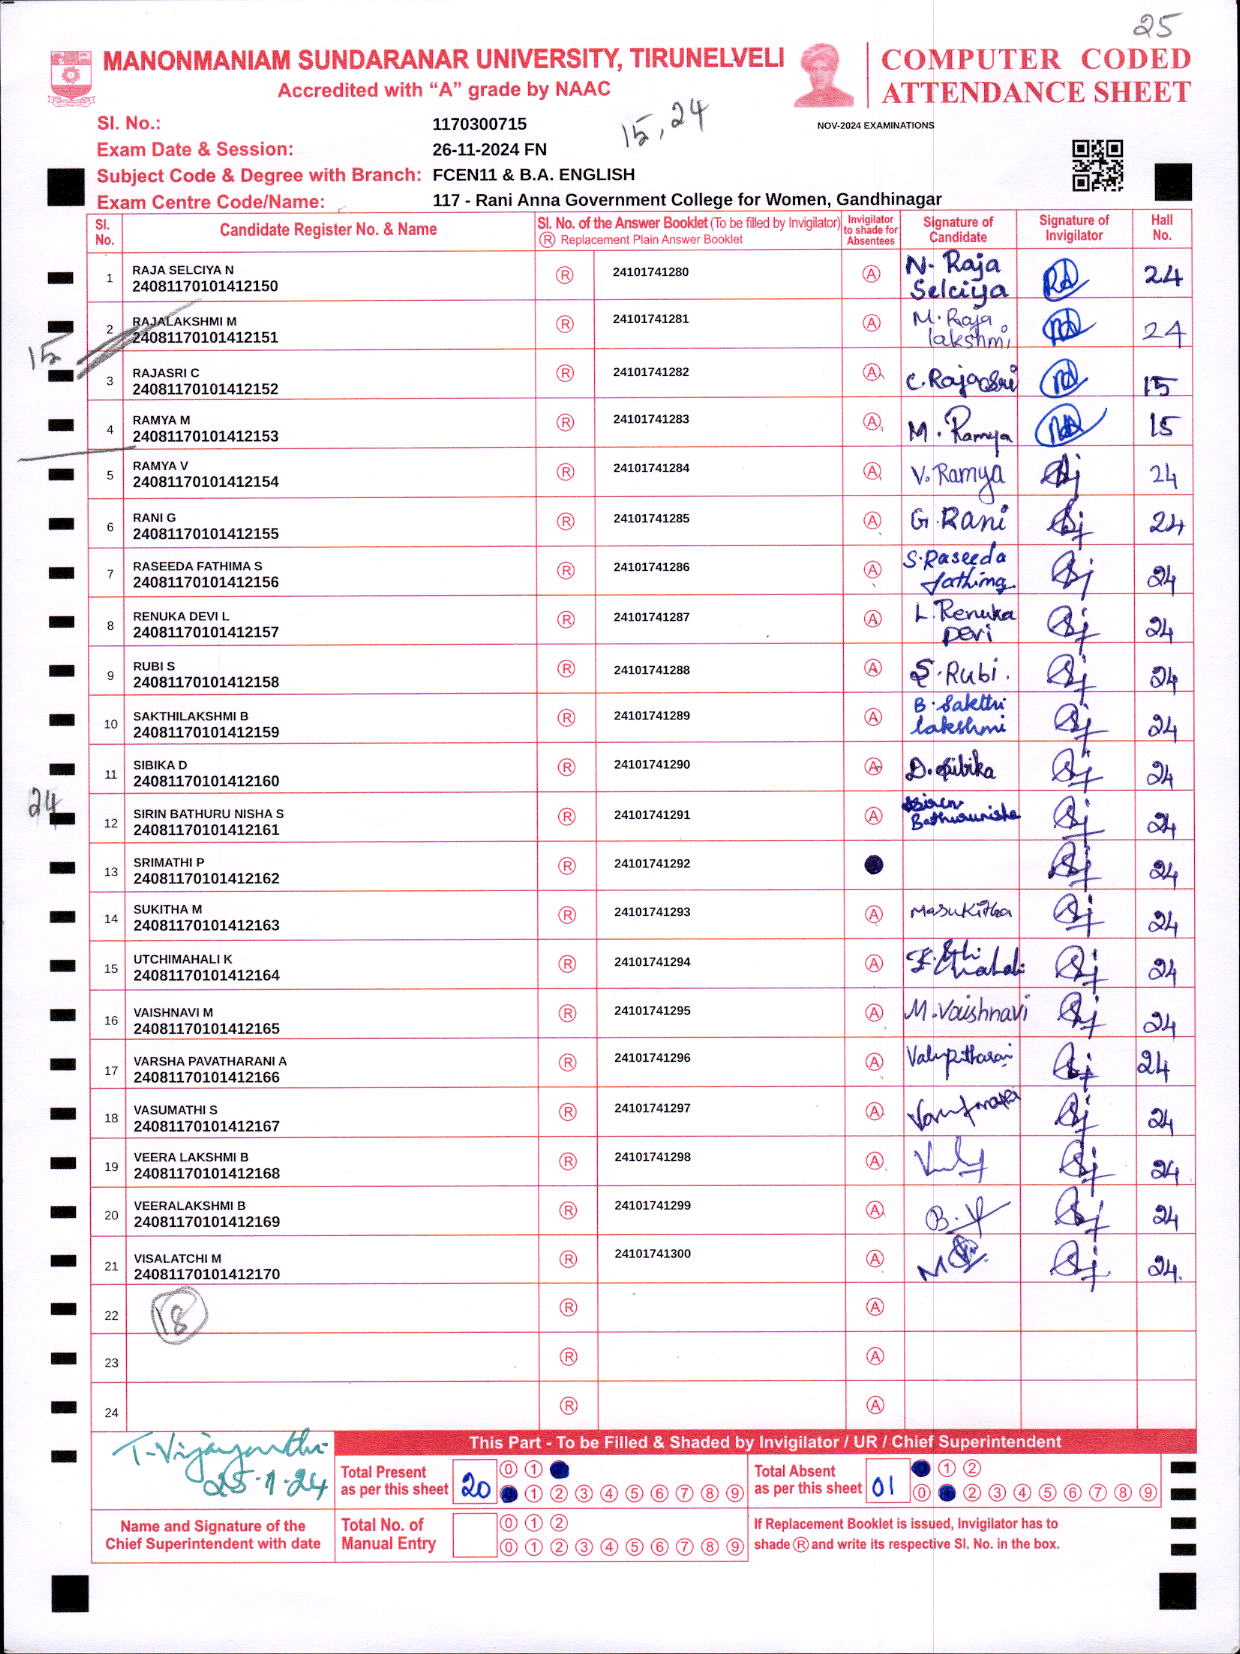 25
MANONMANIAM SUNDARANAR UNIVERSITY, TIRUNELVELI
Accredited with “A” grade by NAAC
COMPUTER CODED
ATTENDANCE SHEET
NOV-2024 EXAMINATIONS
Sl. No.: 1170300715
15, 24
Exam Date & Session: 26-11-2024 FN
Subject Code & Degree with Branch: FCEN11 & B.A. ENGLISH
Exam Centre Code/Name: 117 - Rani Anna Government College for Women, Gandhinagar
Sl. No. Candidate Register No. & Name Sl. No. of the Answer Booklet (To be filled by Invigilator) Ⓡ Replacement Plain Answer Booklet Invigilator to shade for Absentees Signature of Candidate Signature of Invigilator Hall No.
1 RAJA SELCIYA N 24081170101412150 Ⓡ 24101741280 Ⓐ N. Raja Selciya 24
2 RAJALAKSHMI M 24081170101412151 Ⓡ 24101741281 Ⓐ M. Raja lakshmi 24
15
3 RAJASRI C 24081170101412152 Ⓡ 24101741282 Ⓐ C. Rajasri 15
4 RAMYA M 24081170101412153 Ⓡ 24101741283 Ⓐ M. Ramya 15
5 RAMYA V 24081170101412154 Ⓡ 24101741284 Ⓐ V. Ramya 24
6 RANI G 24081170101412155 Ⓡ 24101741285 Ⓐ G. Rani 24
7 RASEEDA FATHIMA S 24081170101412156 Ⓡ 24101741286 Ⓐ S. Raseeda fathima 24
8 RENUKA DEVI L 24081170101412157 Ⓡ 24101741287 Ⓐ L. Renuka Devi 24
9 RUBI S 24081170101412158 Ⓡ 24101741288 Ⓐ S. Rubi. 24
10 SAKTHILAKSHMI B 24081170101412159 Ⓡ 24101741289 Ⓐ B. Sakthi lakshmi 24
11 SIBIKA D 24081170101412160 Ⓡ 24101741290 Ⓐ D. Sibika 24
24
12 SIRIN BATHURU NISHA S 24081170101412161 Ⓡ 24101741291 Ⓐ Bathurunisha 24
13 SRIMATHI P 24081170101412162 Ⓡ 24101741292 24
14 SUKITHA M 24081170101412163 Ⓡ 24101741293 Ⓐ 24
15 UTCHIMAHALI K 24081170101412164 Ⓡ 24101741294 Ⓐ 24
16 VAISHNAVI M 24081170101412165 Ⓡ 24101741295 Ⓐ M. Vaishnavi 24
17 VARSHA PAVATHARANI A 24081170101412166 Ⓡ 24101741296 Ⓐ 24
18 VASUMATHI S 24081170101412167 Ⓡ 24101741297 Ⓐ 24
19 VEERA LAKSHMI B 24081170101412168 Ⓡ 24101741298 Ⓐ 24
20 VEERALAKSHMI B 24081170101412169 Ⓡ 24101741299 Ⓐ 24
21 VISALATCHI M 24081170101412170 Ⓡ 24101741300 Ⓐ 24.
22 18 Ⓡ Ⓐ
23 Ⓡ Ⓐ
24 Ⓡ Ⓐ
This Part - To be Filled & Shaded by Invigilator / UR / Chief Superintendent
Total Present as per this sheet 20
0 1
1 2 3 4 5 6 7 8 9
Total Absent as per this sheet 01
1 2
0 2 3 4 5 6 7 8 9
Name and Signature of the Chief Superintendent with date
Total No. of Manual Entry
0 1 2
0 1 2 3 4 5 6 7 8 9
If Replacement Booklet is issued, Invigilator has to
shade Ⓡ and write its respective Sl. No. in the box.